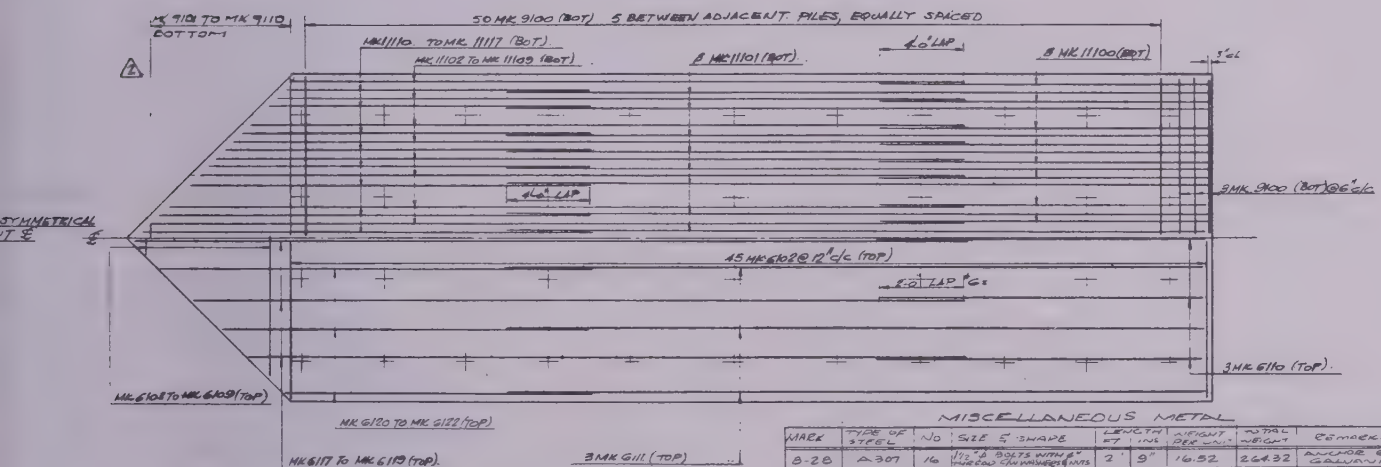 MK 9101 TO MK 9110
BOTTOM
50 MK 9100 (BOT) 5 BETWEEN ADJACENT PILES, EQUALLY SPACED
MK11110 TO MK 11117 (BOT)
MK 11102 TO MK 11109 (BOT)
8 MK 11101 (BOT)
4'-0" LAP
8 MK 11100 (BOT)
3" CL
2
4'-0" LAP
9 MK 9100 (BOT) @ 6" c/c
SYMMETRICAL
℄
℄
45 MK 6102 @ 12" c/c (TOP)
2'-0" LAP
3 MK 6110 (TOP)
MK 6103 TO MK 6109 (TOP)
MK 6120 TO MK 6122 (TOP)
MK 6117 TO MK 6119 (TOP)
3 MK 6111 (TOP)
MISCELLANEOUS METAL
MARK TYPE OF STEEL NO SIZE & SHAPE LENGTH FT INS WEIGHT PER UNIT TOTAL WEIGHT REMARK
B-28 A307 16 1 1/2" ⌀ BOLTS WITH NUTS 2' 9" 16.52 264.32 ANCHOR